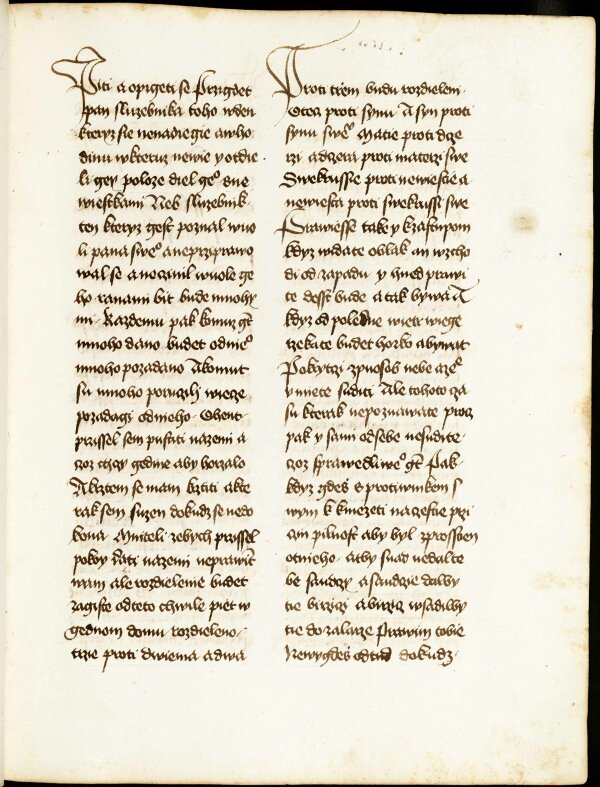 Piti a opigeti se Przigdet
pan sluzebnika toho wden
kteryz sie nenadiegie awho
dinu wkteruz newie y otdie
li gey poloze diel ge° dne
wiestkami Neb sluzebnik
ten kteryz gest poznal wuo
li pana swe° a neprziprawo
wal se a neczinil wuole ge
ho ranami bit bude mnohy
mi Kazdemu pak komuz gt
mnoho dano budet od nie°
mnoho pozadano A komut
su mnoho poruczili wiecze
pozadagi od nieho Ohent
przissel sem pustati na zemi a
czoz chczy gedine aby horzalo
A krztem se mam krztiti a kte
rak sem suzen dokudz se nedo
kona Mniteli zebych przissel
pokoy dati na zemi neprawit
wam ale rozdielenie budet
zagiste od teto chwile piet w
gednom domu rozdieleno
trzie proti dwiema a dwa
Proti trzem budu rozdieleni
Otecz proti synu A syn proti
synu swe° Matie proti dcze
rzi a dczera proti materzi swe
Swekrussie proti newiestie a
newiesta proti swekrussi swe
Prawiesse take y k zastupom
kdyz vzdate oblak an wzcho
di od zapadu y hned prawi
te desst bude a tak bywa A
kdyz od poledne wietr wiege
rzekate budet horko a bywat
Pokrytczi zpuosob nebe a ze°
vmiete suditi Ale tohoto cza
su kterak nepoznawate procz
pak y sami od sebe nesudite
czoz sprawedliwe° gt Pak
kdyz gdes s protiwnikem s
wym k kniezeti na czestie przi
czin pilnost aby byl zprossczen
ot nieho at by snad nedal te
be sandczy a sandcze dal by
tie birziczi a birzicz wsadil by
tie do zalarze Prawim tobie
Newygdes odtud dokudz